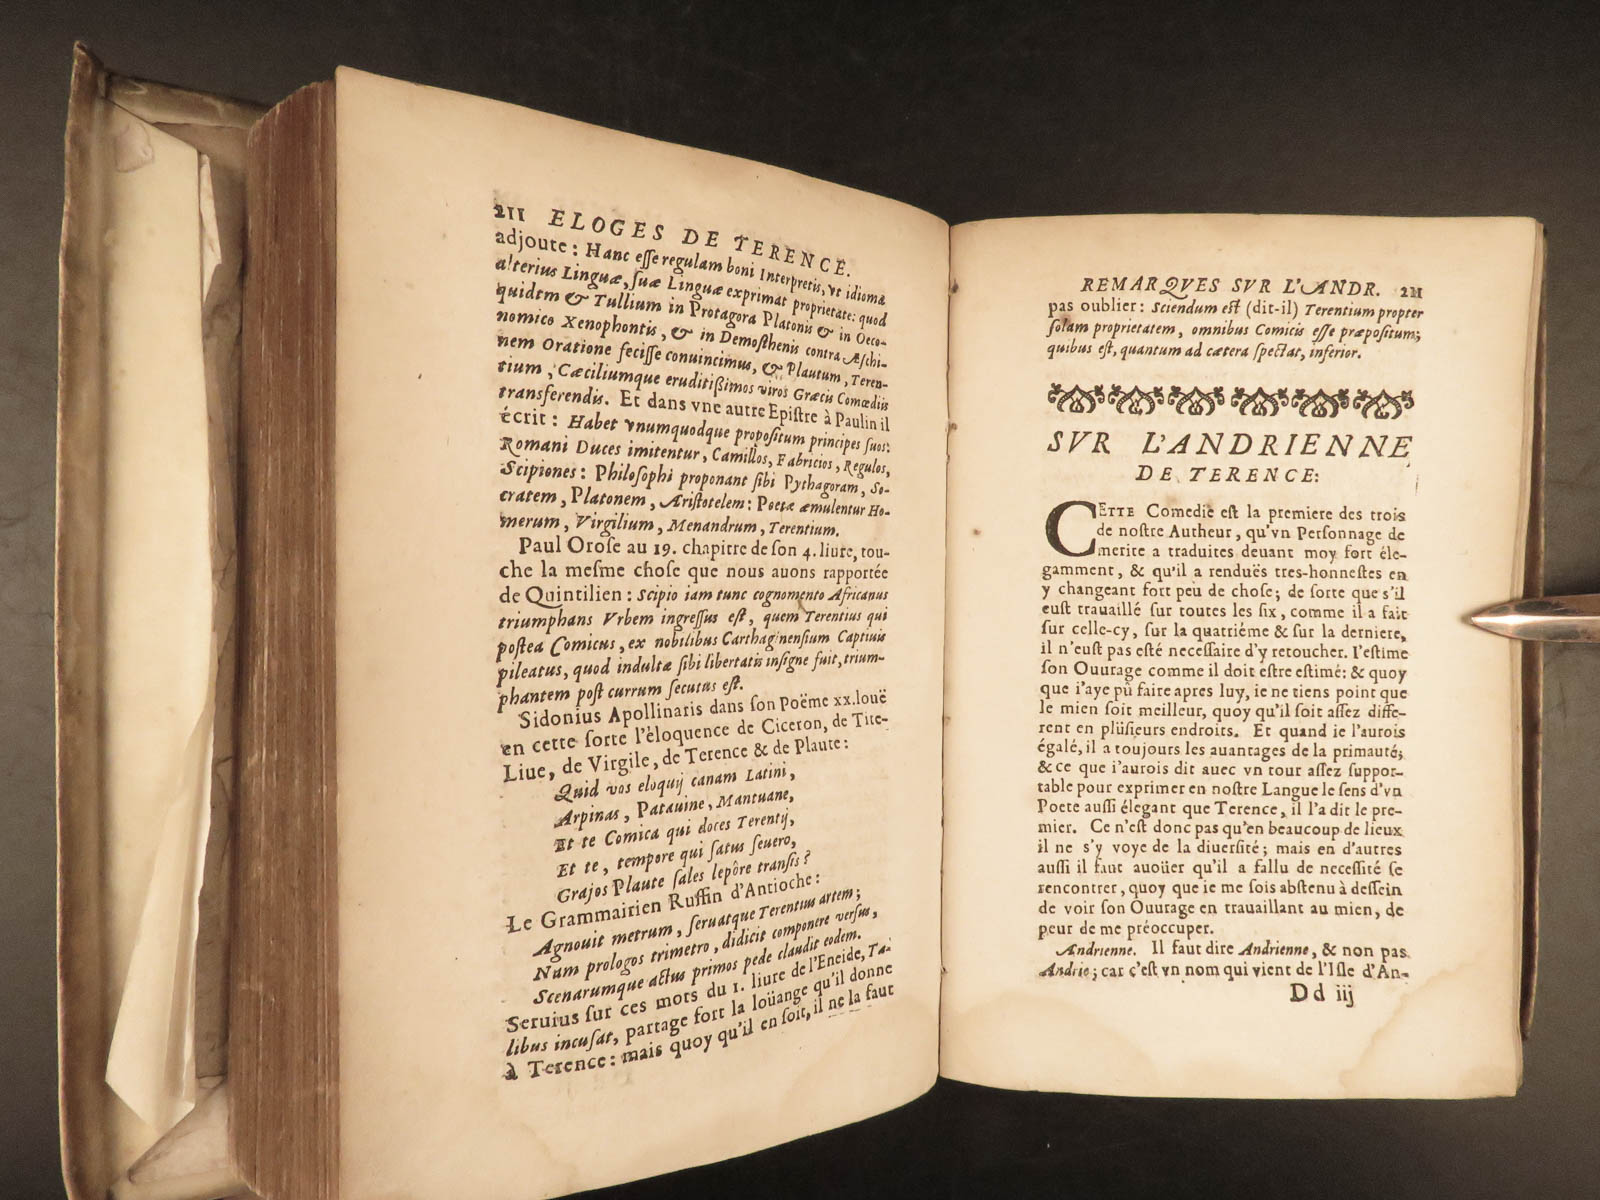 211 ELOGES DE TERENCE.
adjoute : Hanc eſſe regulam boni Interpretis, vt idioma
alterius Linguæ, ſuæ Linguæ exprimat proprietate: quod
quidem & Tullium in Protagora Platonis & in Oeco-
nomico Xenophontis, & in Demoſthenis contra Æſchi-
nem Oratione feciſſe conuincimus, & Plautum, Teren-
tium, Cæciliumque eruditißimos viros Græcis Comœdiis
transferendis. Et dans vne autre Epiſtre à Paulin il
écrit : Habet vnumquodque propoſitum principes ſuos:
Romani Duces imitentur, Camillos, Fabricios, Regulos,
Scipiones : Philoſophi proponant ſibi Pythagoram, So-
cratem, Platonem, Ariſtotelem : Poetæ æmulentur Ho-
merum, Virgilium, Menandrum, Terentium.
Paul Oroſe au 19. chapitre de ſon 4. liure, tou-
che la meſme choſe que nous auons rapportée
de Quintilien : Scipio iam tunc cognomento Africanus
triumphans Vrbem ingreſſus eſt, quem Terentius qui
poſtea Comicus, ex nobilibus Carthaginenſium Captiuis
pileatus, quod indultæ ſibi libertatis inſigne fuit, trium-
phantem poſt currum ſecutus eſt.
Sidonius Apollinaris dans ſon Poëme xx. louë
en cette ſorte l'èloquence de Ciceron, de Tite-
Liue, de Virgile, de Terence & de Plaute :
Quid vos eloquij canam Latini,
Arpinas, Patauine, Mantuane,
Et te Comica qui doces Terentij,
Et te, tempore qui ſatus ſeuero,
Grajos Plaute ſales lepôre tranſis ?
Le Grammairien Ruffin d'Antioche :
Agnouit metrum, ſeruatque Terentius artem ;
Num prologos trimetro, didicit componere verſus,
Scenarumque actus primos pede claudit eodem.
Seruius ſur ces mots du 1. liure de l'Eneide, Ta-
libus incuſat, partage fort la loüange qu'il donne
à Terence : mais quoy qu'il en ſoit, il ne la faut
REMARQVES SVR L'ANDR. 211
pas oublier : Sciendum eſt (dit-il) Terentium propter
ſolam proprietatem, omnibus Comicis eſſe præpoſitum;
quibus eſt, quantum ad cætera ſpectat, inferior.
SVR L'ANDRIENNE
DE TERENCE:
CETTE Comedie eſt la premiere des trois
de noſtre Autheur, qu'vn Perſonnage de
merite a traduites deuant moy fort éle-
gamment, & qu'il a renduës tres-honneſtes en
y changeant fort peu de choſe; de ſorte que s'il
euſt trauaillé ſur toutes les ſix, comme il a fait
ſur celle-cy, ſur la quatriéme & ſur la derniere,
il n'euſt pas eſté neceſſaire d'y retoucher. I'eſtime
ſon Ouurage comme il doit eſtre eſtimé: & quoy
que i'aye pû faire apres luy, ie ne tiens point que
le mien ſoit meilleur, quoy qu'il ſoit aſſez diffe-
rent en pluſieurs endroits. Et quand ie l'aurois
égalé, il a toujours les auantages de la primauté;
& ce que i'aurois dit auec vn tour aſſez ſuppor-
table pour exprimer en noſtre Langue le ſens d'vn
Poete auſſi élegant que Terence, il l'a dit le pre-
mier. Ce n'eſt donc pas qu'en beaucoup de lieux
il ne s'y voye de la diuerſité; mais en d'autres
auſſi il faut auoüer qu'il a fallu de neceſſité ſe
rencontrer, quoy que ie me ſois abſtenu à deſſein
de voir ſon Ouurage en trauaillant au mien, de
peur de me préoccuper.
Andrienne. Il faut dire Andrienne, & non pas
Andrie; car c'eſt vn nom qui vient de l'Iſle d'An-
Dd iij